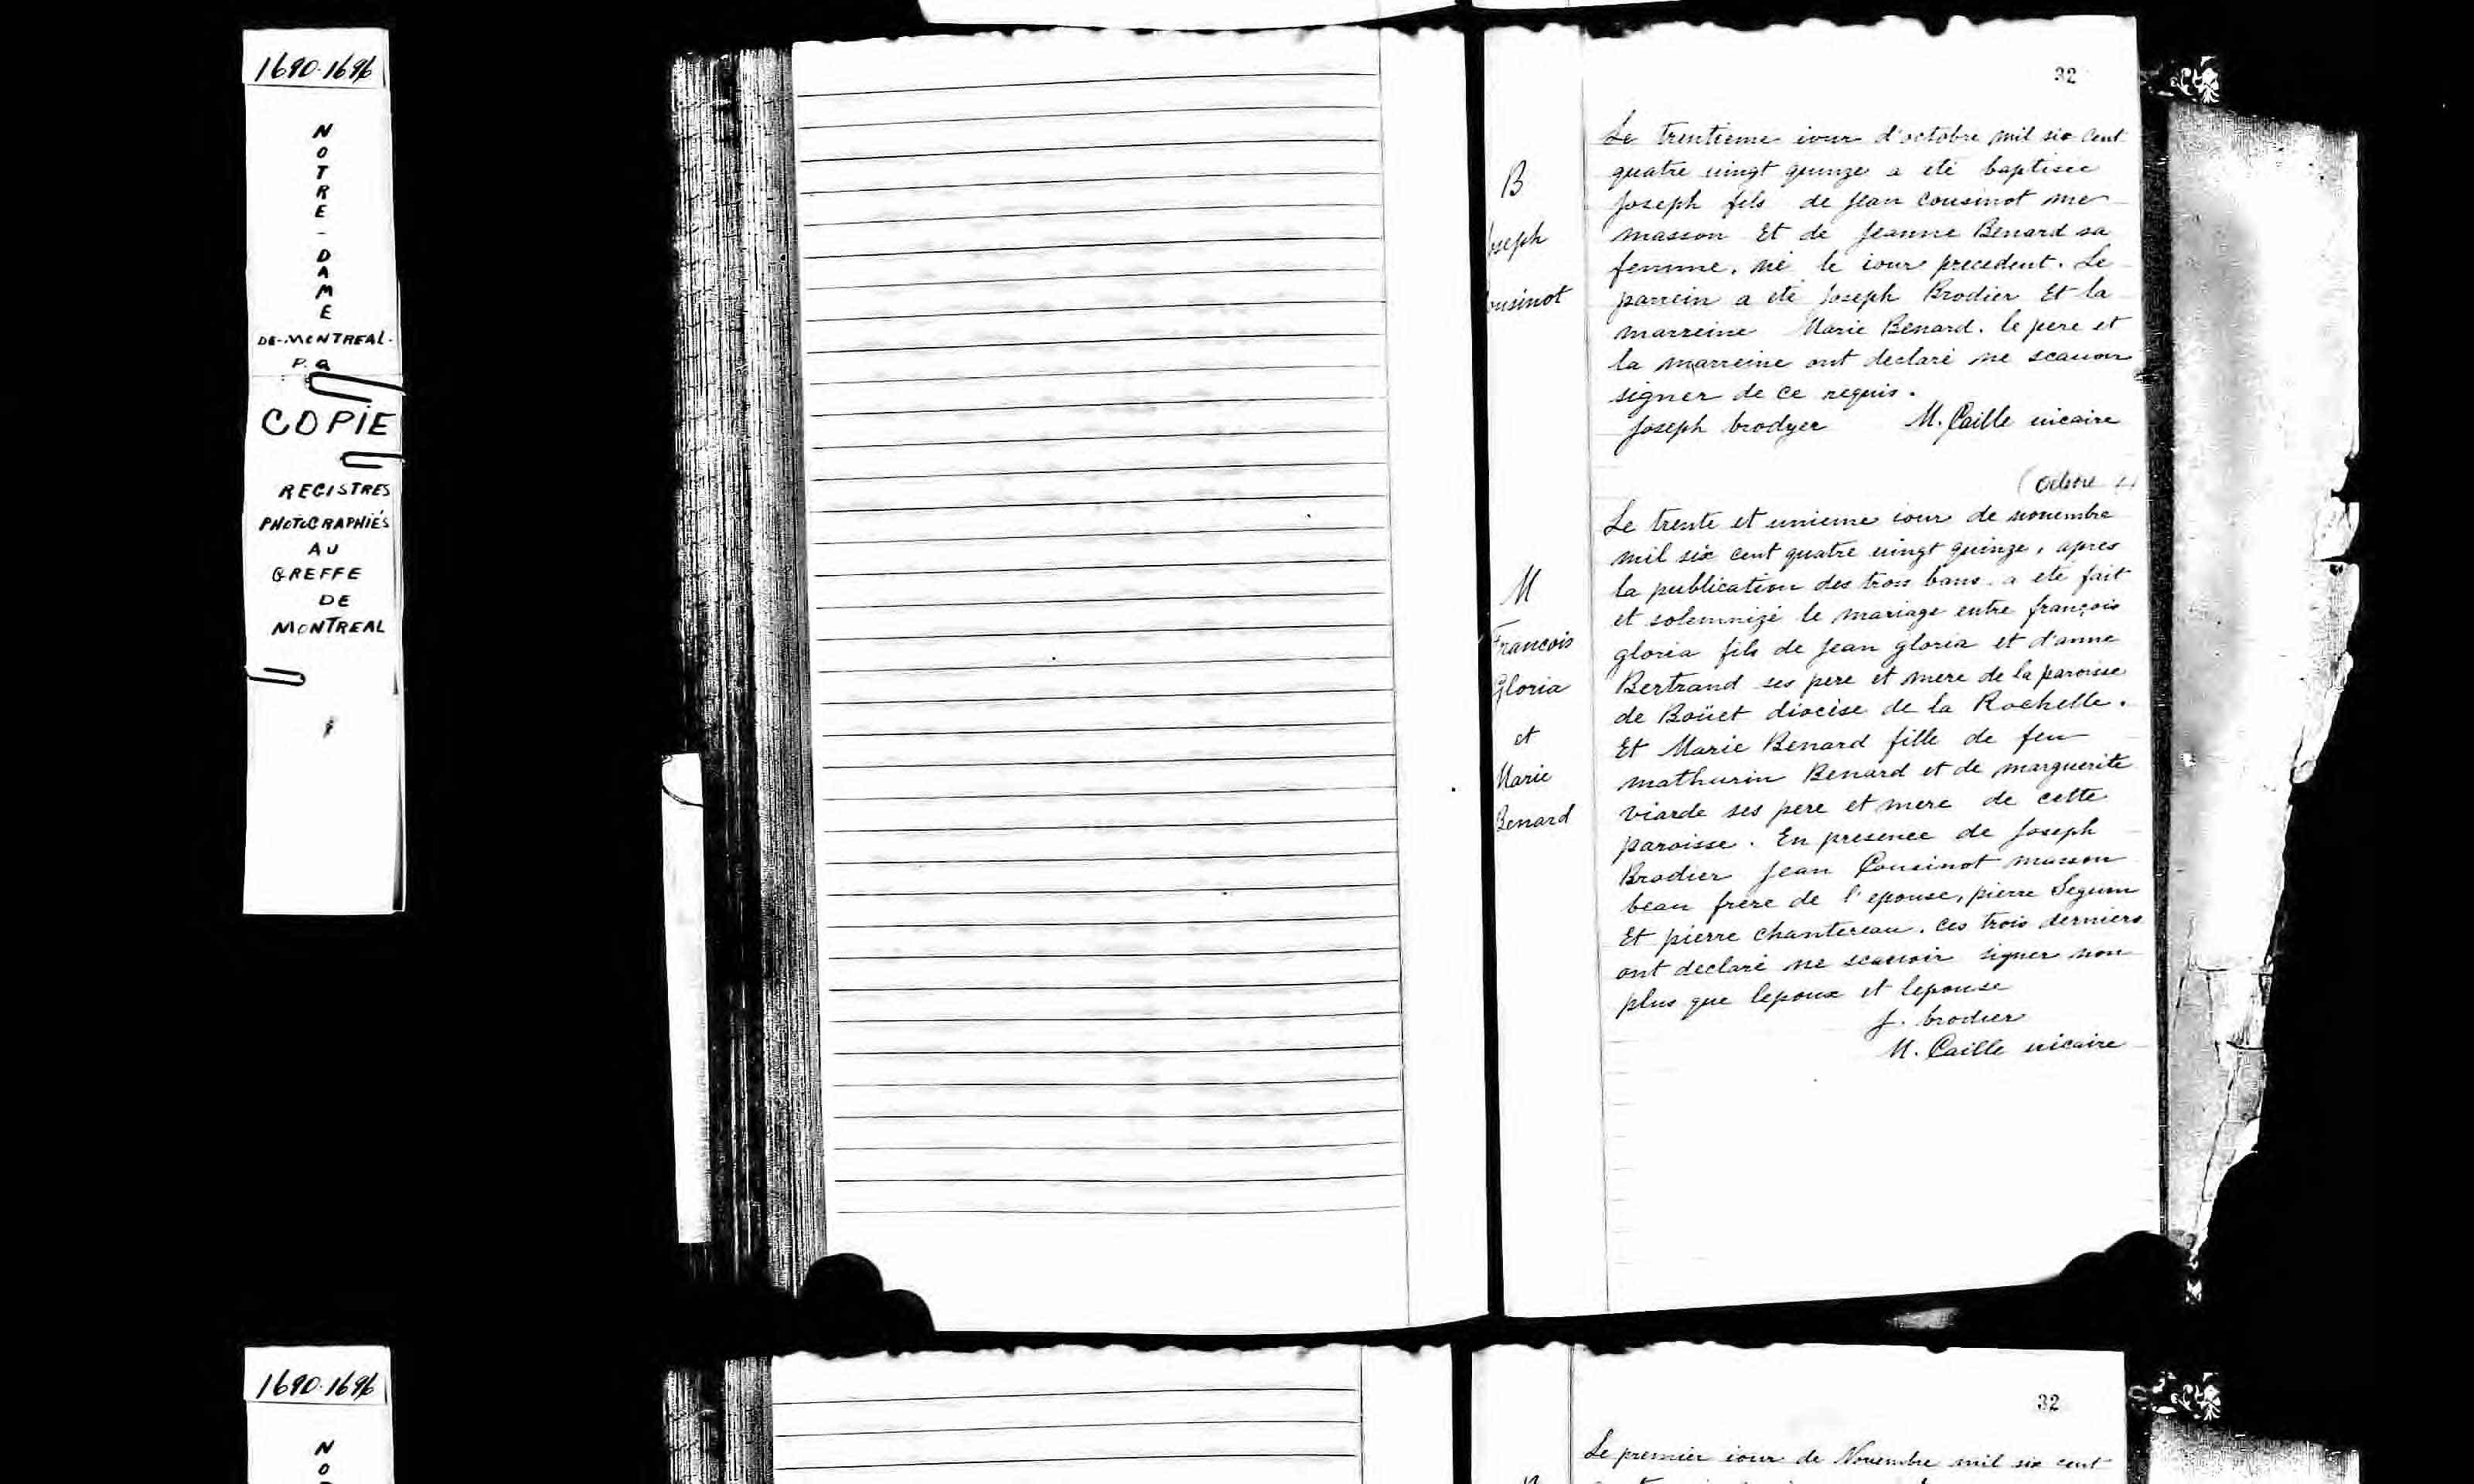 1690-1696
N
O
T
R
E
-
D
A
M
E
DE-MONTREAL-
P. Q
COPIE
REGISTRES
PHOTOGRAPHIÉS
AU
GREFFE
DE
MONTREAL
32
B
Joseph
ousinot
Le trentieme iour d'octobre mil six cent
quatre uingt quinze a eté baptisée
Joseph fils de Jean Cousinot me
masson Et de Jeanne Benard sa
femme, né le iour precedent. Le
parrein a eté Joseph Brodier Et la
marreine Marie Benard. le pere et
la marreine ont declaré ne scauoir
signer de ce requis.
Joseph brodyer M. Caille uicaire
M
Francois
Gloria
et
Marie
Benard
(octobre
Le trente et unieme iour de nouembre
mil six cent quatre uingt quinze, apres
la publication des trois bans a eté fait
et solemnizé le mariage entre françois
gloria fils de Jean gloria et d'anne
Bertrand ses pere et mere de la paroisse
de Boüet diocése de la Rochelle.
Et Marie Benard fille de feu
mathurin Benard et de marguerite
viarde ses pere et mere de cette
paroisse. En presence de Joseph
Brodier Jean Cousinot masson
beau frere de l'epouse, pierre Segum
Et pierre chantereau. ces trois derniers
ont declaré ne scauoir signer non
plus que lepoux et lepouse
J. brodier
M. Caille uicaire
1690-1696
N
O
32
Le premier iour de Nouembre mil six cent